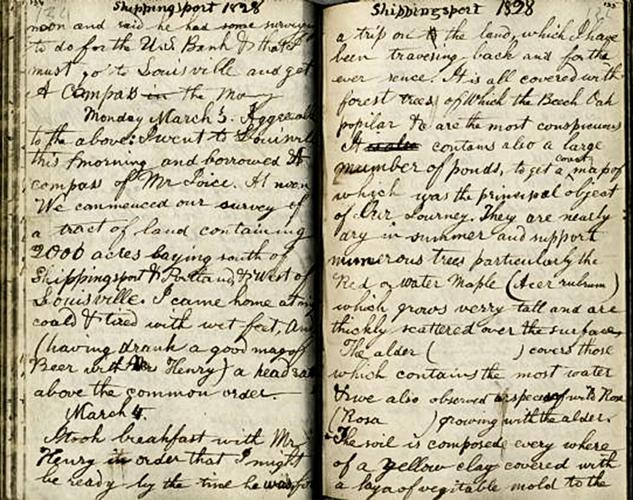 134
Shippingsport 1828
noon and said he had some surveying
to do for the U.S Bank & that I
must go to Louisville and get
A Compass in the Mo
Monday March 3. Aggreeable
to the above I went to Louisville
this morning and borrowed A
compass of Mr Joice. At noon
We cammenced our survey of
a tract of land containing
2000 acres laying south of
Shippingsport & Portland & West of
Louisville. I came home at
coald & tired with wet feet, An
(having drank a good mug of
Beer with Mr Henry) a head
above the common order.
March 4.
I took breakfast with Mr
Henry in order that I might
be ready by the time he was
135
Shippingsport 1828
a trip on the land, which I have
been travesing back and forth
ever sence. It is all covered with
forest trees of which the Beech Oak
poplar &c are the most conspicuous
It contains also a large
number of ponds, to get a correct map of
which was the principal object
of Our Journey. They are nearly
dry in summer and support
numerous trees particularly the
Red or Water Maple (Acer rubrum)
which grows verry tall and are
thickly scattered over the surface
The alder ( ) covers those
which contains the most water
& we also observed a species of wild Rose
(Rosa ) growing with the alder.
The soil is composed every where
of a yellow clay covered with
a laya of vegitable mold to the